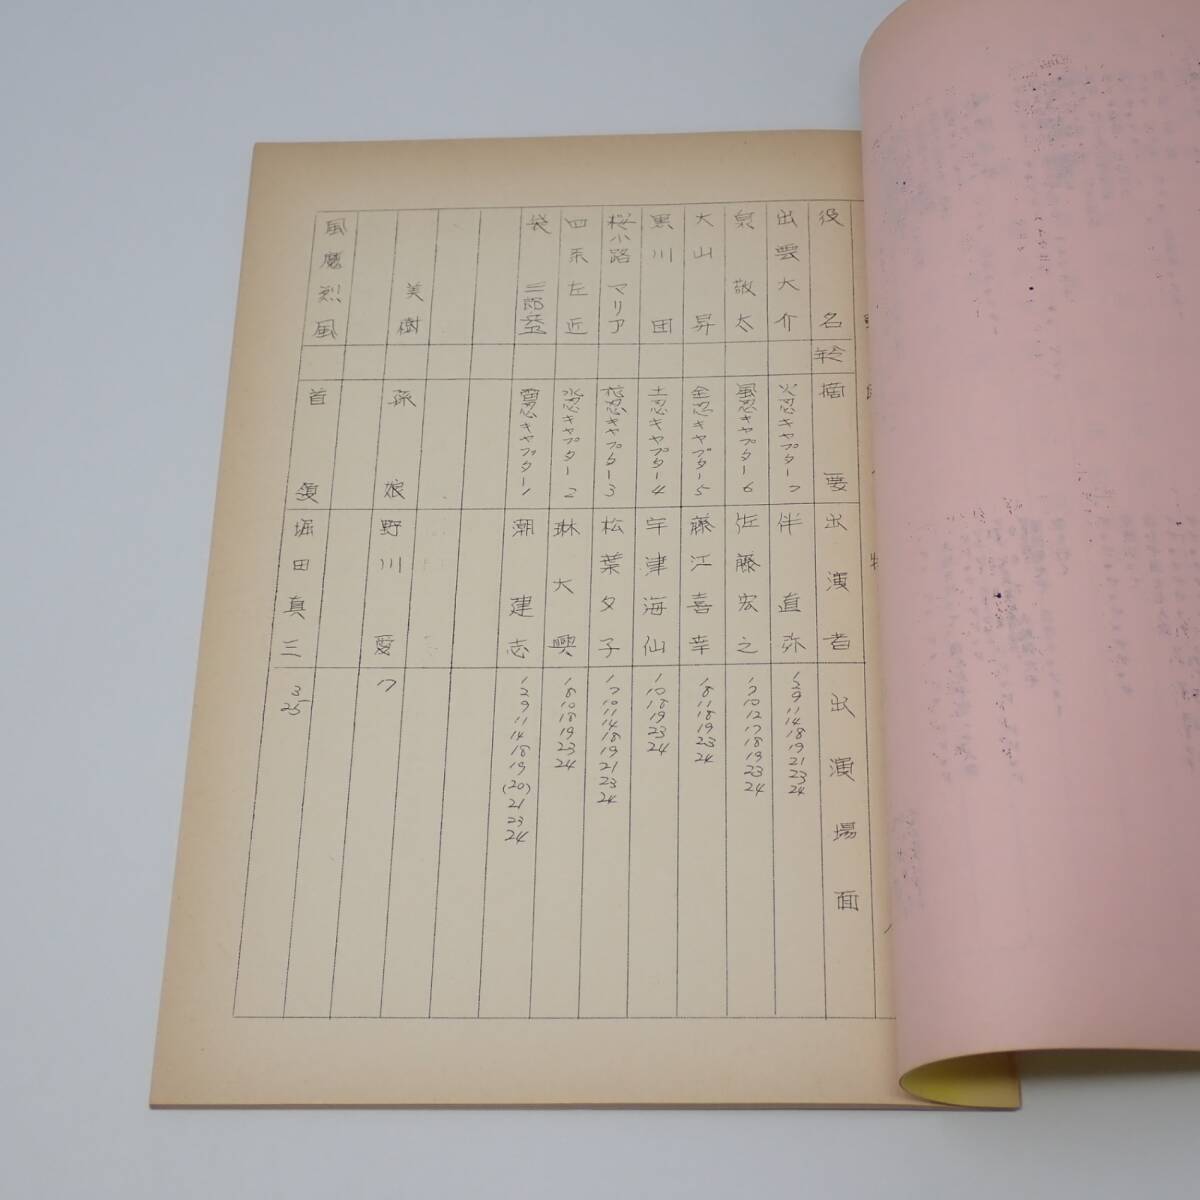 役名 年令 摘要 出演者 出演場面
出雲大介 火忍キャプター7 伴直弥 1 2 9 11 14 18 19 21 23 24
泉敬太 風忍キャプター6 佐藤宏之 1 7 10 12 17 18 19 23 24
大山昇 金忍キャプター5 藤江喜幸 1 8 11 18 19 23 24
黒川田 土忍キャプター4 宇津海仙 1 10 18 19 23 24
桜小路マリア 花忍キャプター3 松葉夕子 1 7 10 11 14 18 19 21 23 24
四条左近 水忍キャプター2 琳大興 1 8 10 18 19 23 24
袋三郎 雷忍キャプター1 潮建志 1 2 9 11 14 18 19 (20) 21 23 24
美樹 孫娘 野川愛 17
風魔烈風 首領 堀田真三 3 25